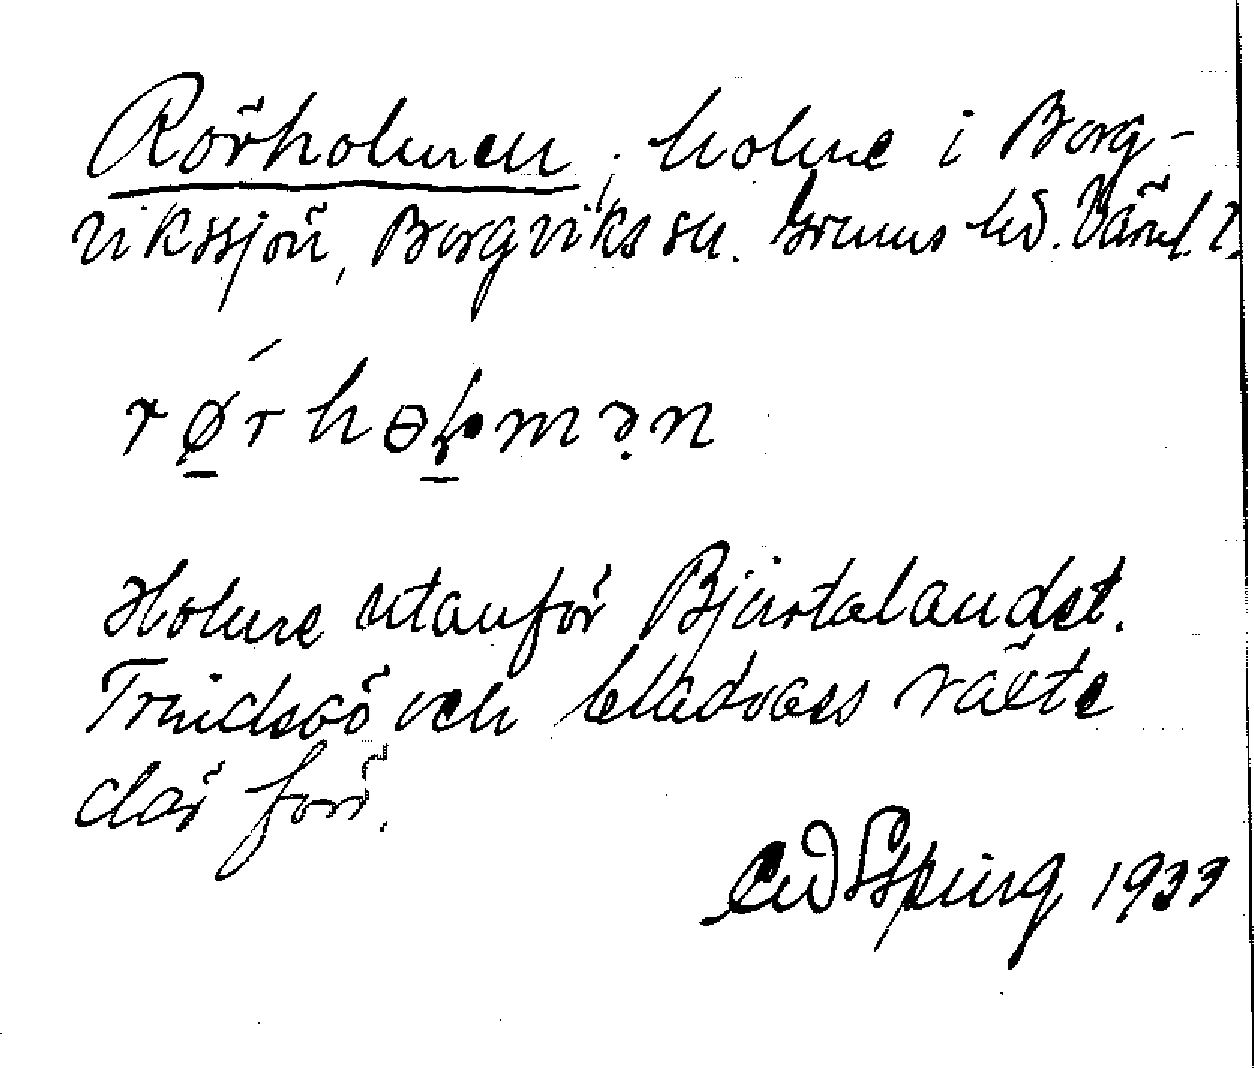 Rörholmen, holme i Borg-
vikssjön, Borgviks sn. Grums hd. Värml. l.
rø̱rhɵɫmən
Holme utanför Bjärtelandet.
Trindsäv och bladvass växte
där förr.
Edv Esping 1933